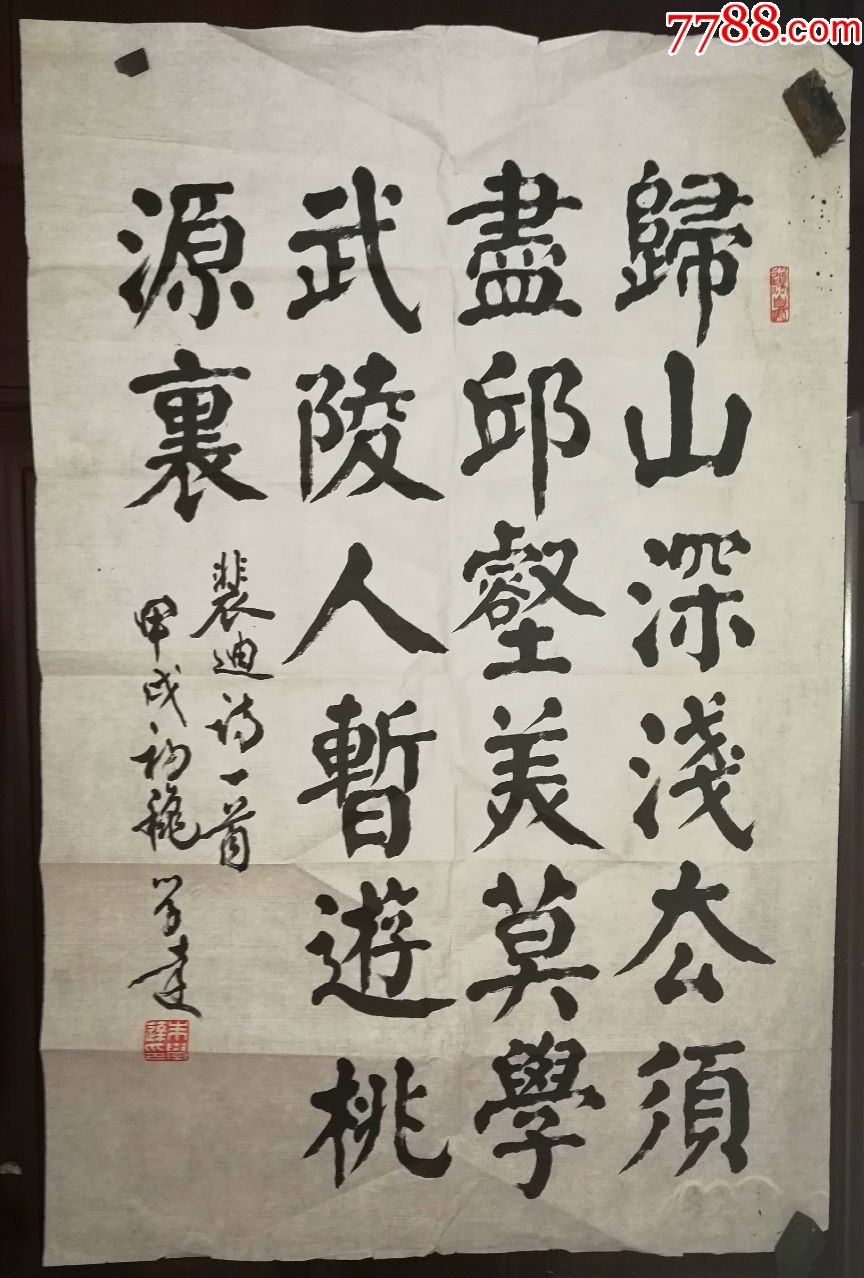 7788.com
歸山深淺厺須
盡邱壑美莫學
武陵人暫遊桃
源裏
裴迪诗一首
甲戌初秋